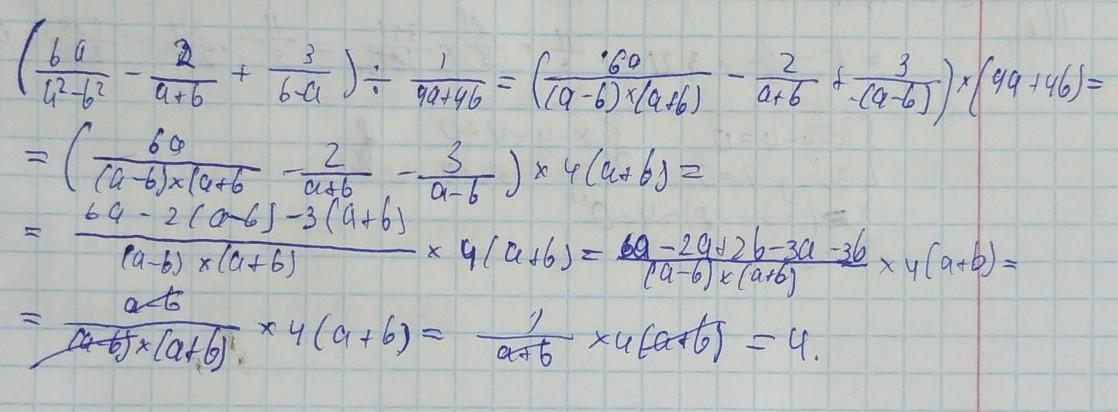 (6a/(a²-b²) - 2/(a+b) + 3/(b-a)) ÷ 1/(4a+4b) = (6a/((a-b)×(a+b)) - 2/(a+b) + 3/(-(a-b))) × (4a+4b) =
= (6a/((a-b)×(a+b) - 2/(a+b) - 3/(a-b)) × 4(a+b) =
= (6a-2(a-b)-3(a+b))/((a-b)×(a+b)) × 4(a+b) = (6a-2a+2b-3a-3b)/((a-b)×(a+b)) × 4(a+b) =
= (a-b)/((a-b)×(a+b)) × 4(a+b) = 1/(a+b) × 4(a+b) = 4.